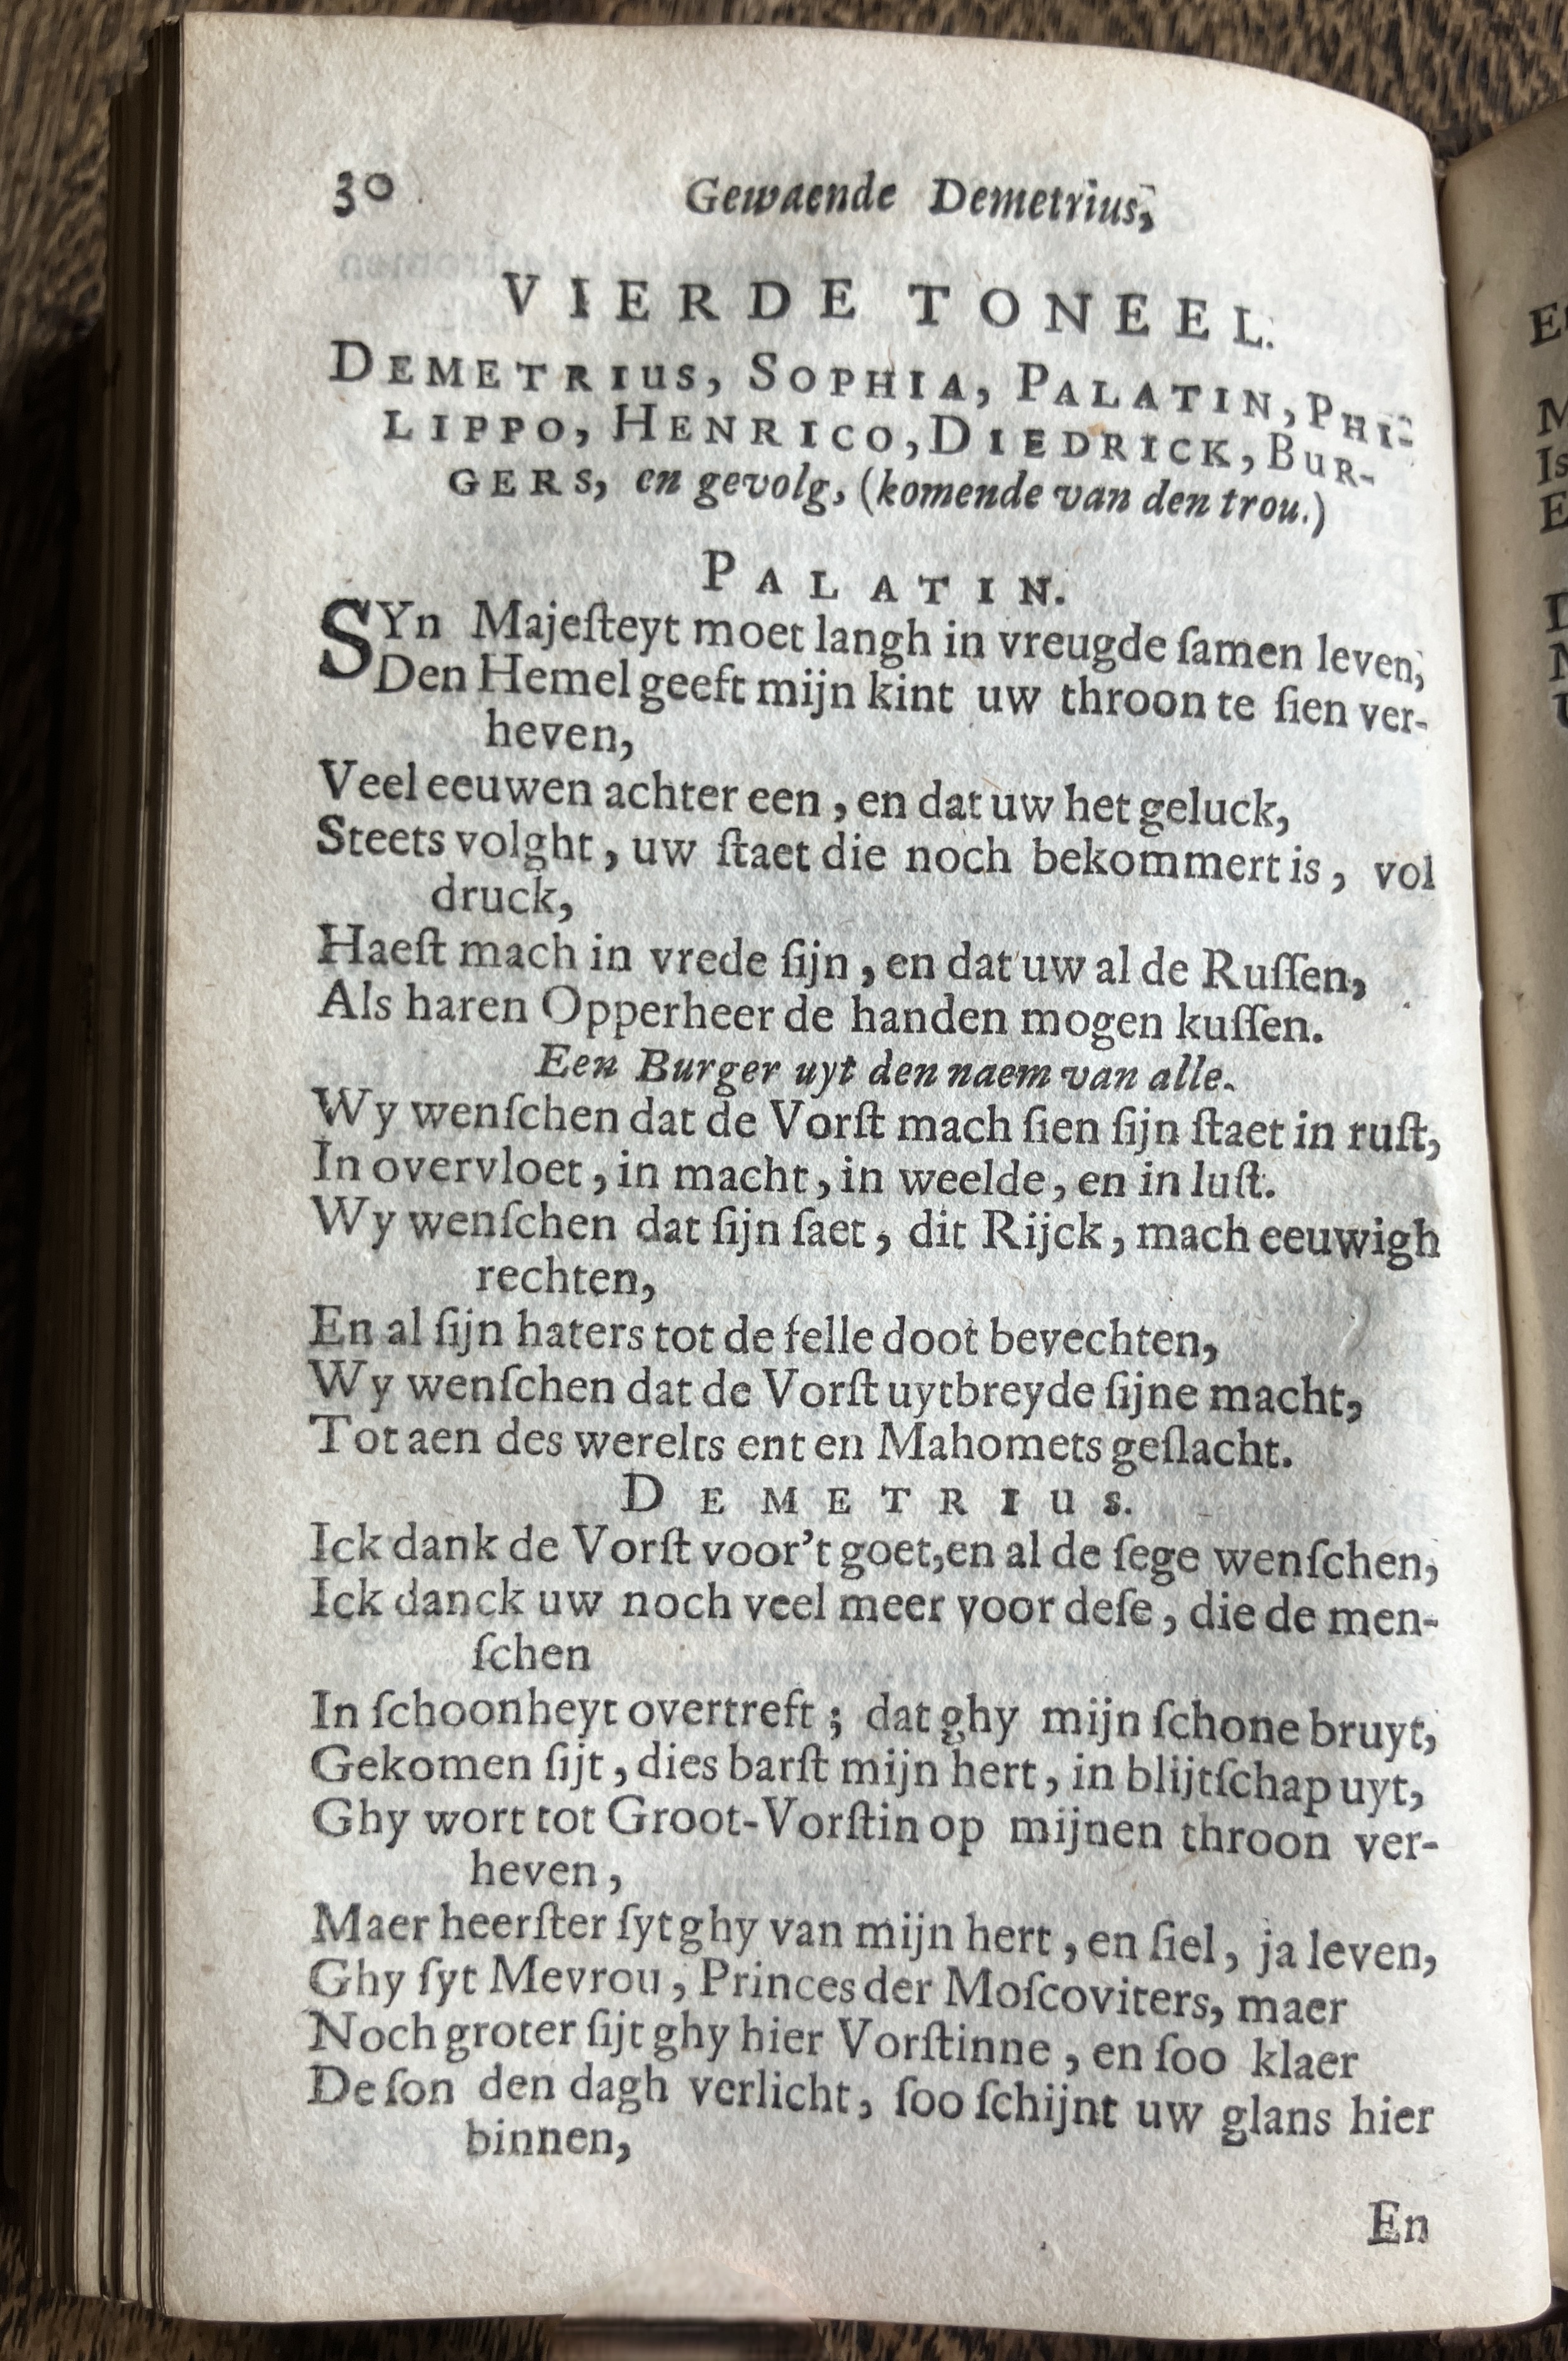 30 Gewaende Demetrius,
VIERDE TONEEL.
DEMETRIUS, SOPHIA, PALATIN, PHI-
LIPPO, HENRICO, DIEDRICK, BUR-
GERS, en gevolg, (komende van den trou.)
PALATIN.
SYn Majeſteyt moet langh in vreugde ſamen leven,
Den Hemel geeft mijn kint uw throon te ſien ver-
heven,
Veel eeuwen achter een, en dat uw het geluck,
Steets volght, uw ſtaet die noch bekommert is, vol
druck,
Haeſt mach in vrede ſijn, en dat uw al de Ruſſen,
Als haren Opperheer de handen mogen kuſſen.
Een Burger uyt den naem van alle.
Wy wenſchen dat de Vorſt mach ſien ſijn ſtaet in ruſt,
In overvloet, in macht, in weelde, en in luſt.
Wy wenſchen dat ſijn ſaet, dit Rijck, mach eeuwigh
rechten,
En al ſijn haters tot de felle doot bevechten,
Wy wenſchen dat de Vorſt uytbreyde ſijne macht,
Tot aen des werelts ent en Mahomets geſlacht.
DEMETRIUS.
Ick dank de Vorſt voor't goet, en al de ſege wenſchen,
Ick danck uw noch veel meer voor deſe, die de men-
ſchen
In ſchoonheyt overtreft; dat ghy mijn ſchone bruyt,
Gekomen ſijt, dies barſt mijn hert, in blijtſchap uyt,
Ghy wort tot Groot-Vorſtin op mijnen throon ver-
heven,
Maer heerſter ſyt ghy van mijn hert, en ſiel, ja leven,
Ghy ſyt Mevrou, Princes der Moſcoviters, maer
Noch groter ſijt ghy hier Vorſtinne, en ſoo klaer
De ſon den dagh verlicht, ſoo ſchijnt uw glans hier
binnen,
En